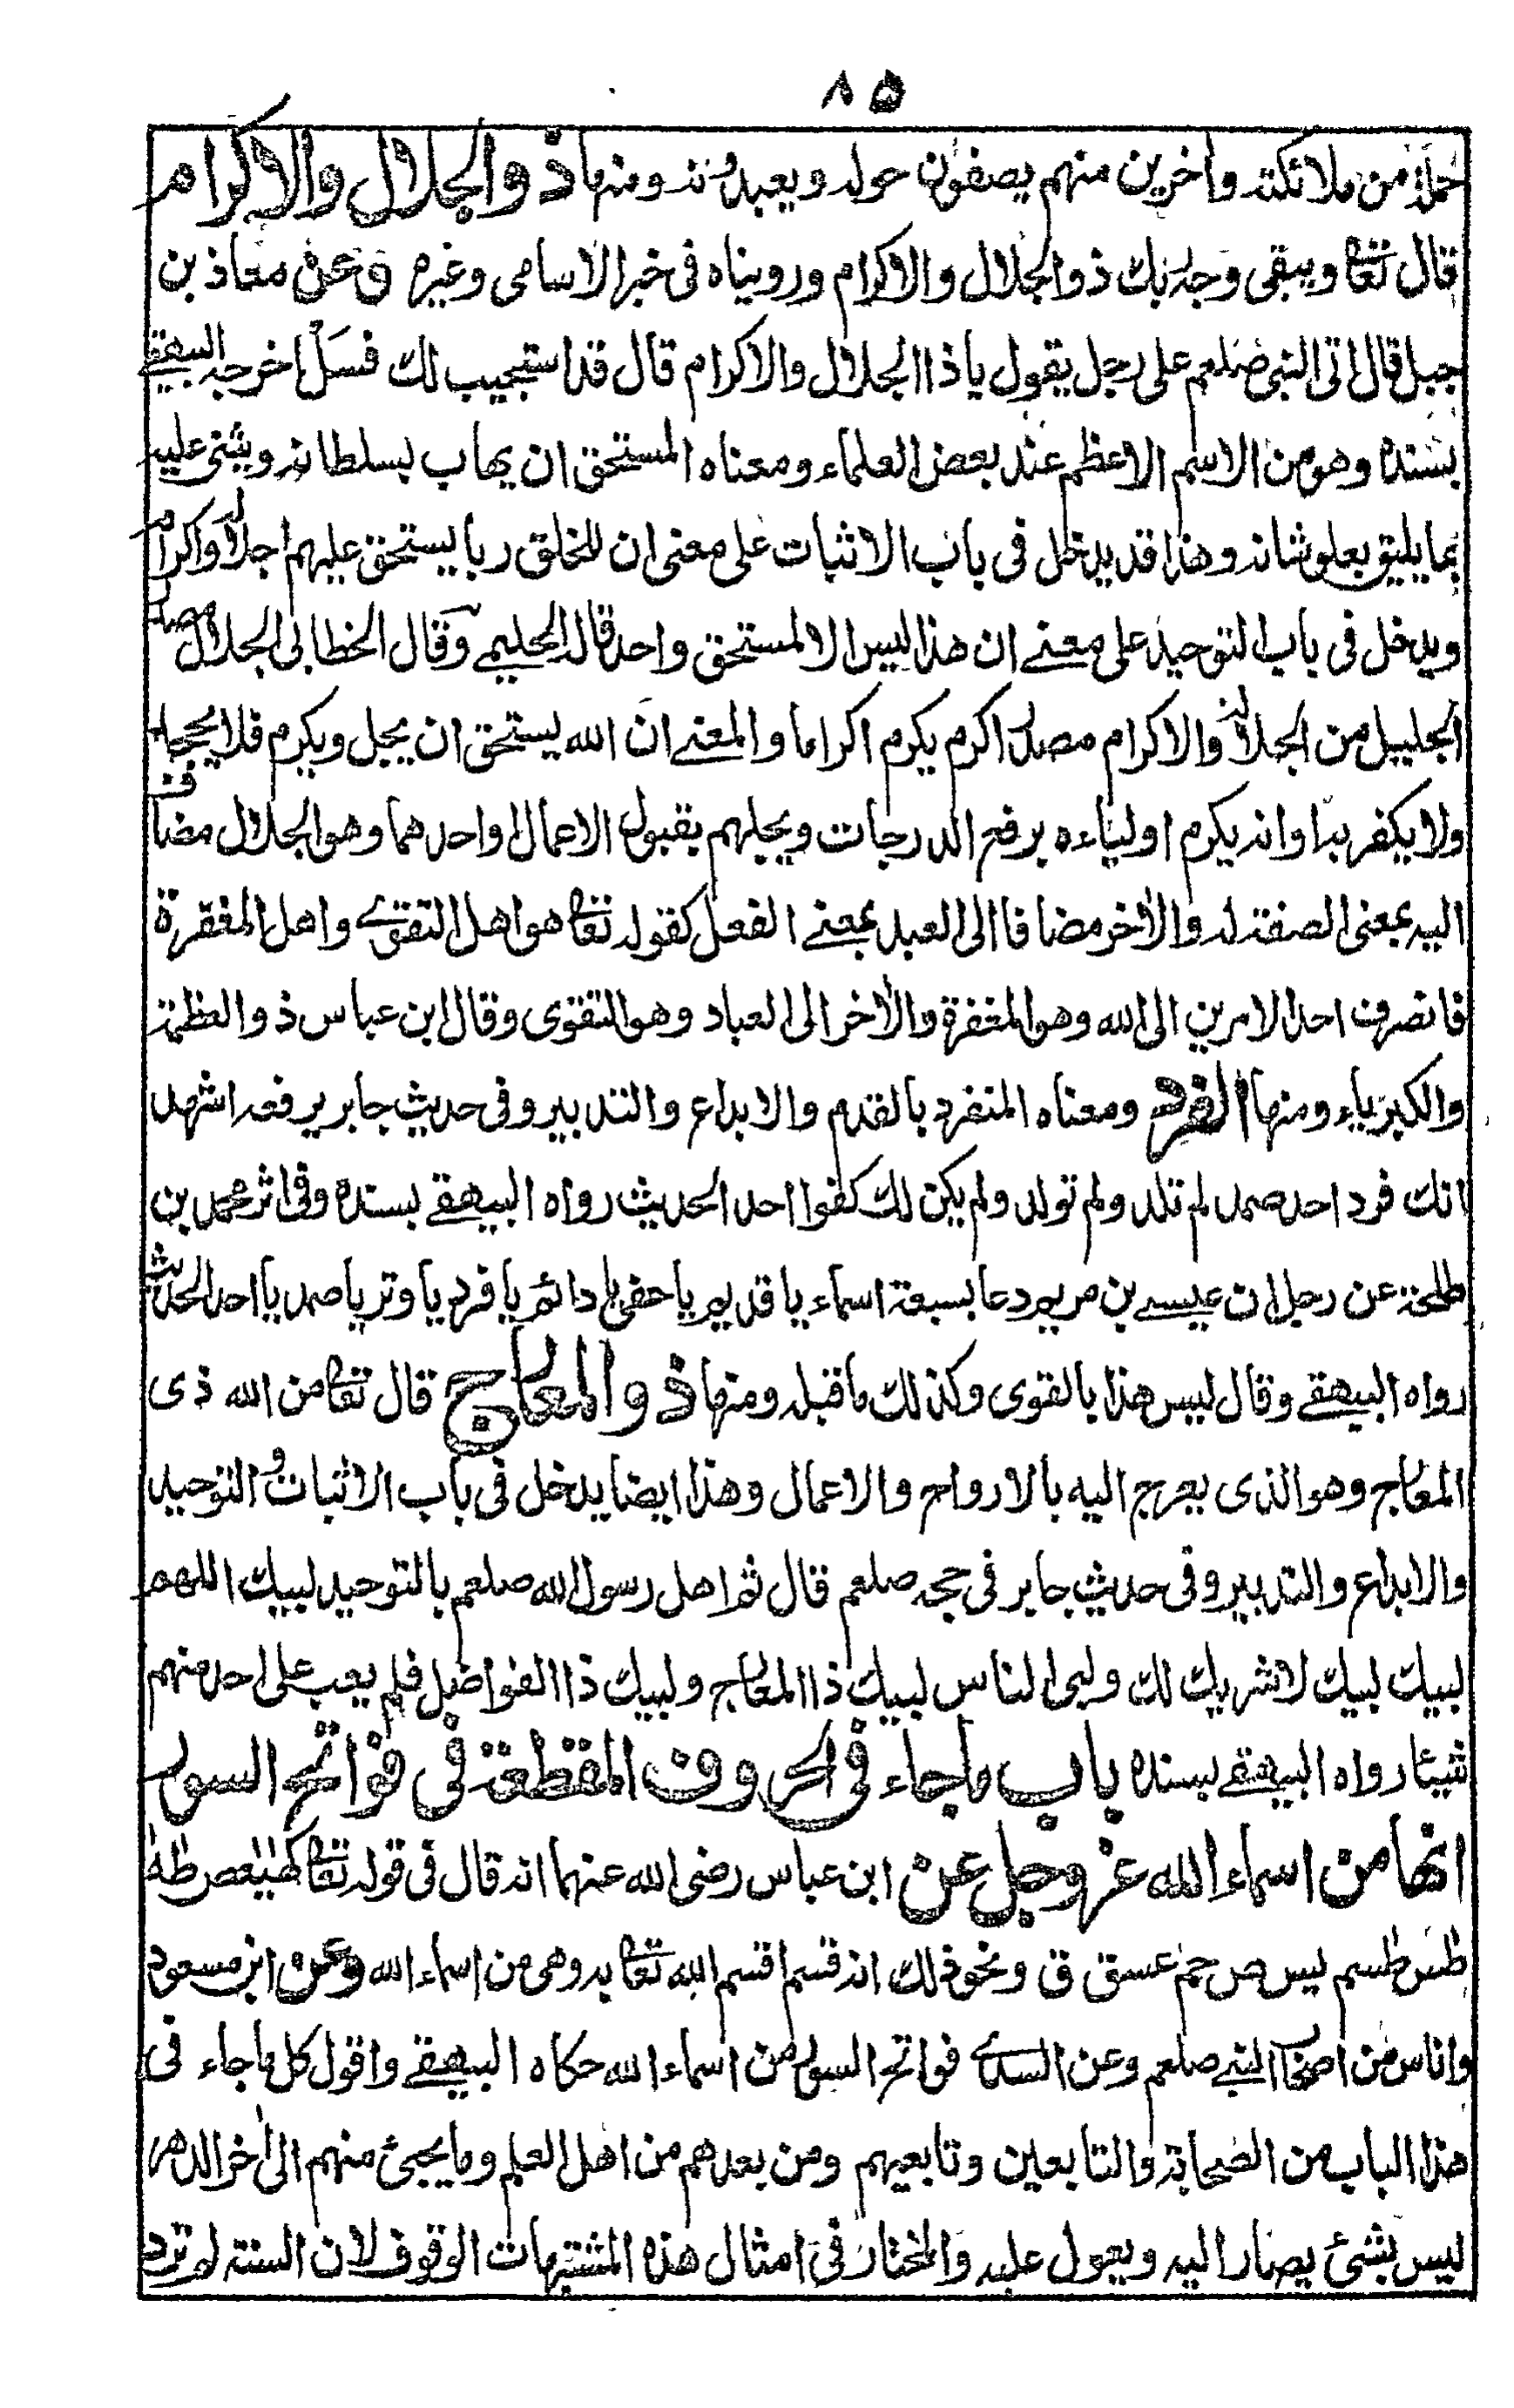 ٨٥
حملة من ملائكته وآخرين منهم يصفون حوله ويعبدونه ومنها ذو الجلال والاكرام
قال تعالى ويبقى وجه ربك ذو الجلال والاكرام ورويناه فى خبر الاسامى وغيره وعن معاذ بن
جبل قال اتى النبى صلعم على رجل يقول يا ذا الجلال والاكرام قال قد استجيب لك فسل اخرجه البيهقى
بسنده وهو من الاسم الاعظم عند بعض العلماء ومعناه المستحق ان يهاب لسلطانه ويثنى عليه
بما يليق بعلو شانه وهذا قد يدخل فى باب الاثبات على معنى ان للخلق ربا يستحق عليهم اجلالا واكراما
ويدخل فى باب التوحيد على معنى ان هذا ليس الا لمستحق واحد قاله الحليمى وقال الخطابى الجلال مصدر
الجليل من الجلالة والاكرام مصدر اكرم يكرم اكراما والمعنى ان الله يستحق ان يجل ويكرم فلا يجحد
ولا يكفر به او انه يكرم اولياءه برفع الدرجات ويجلهم بقبول الاعمال واحدهما وهو الجلال مضافة
اليه بمعنى الصفة له والآخر مضافا الى العبد بمعنى الفعل كقوله تعالى هو اهل التقوى واهل المغفرة
فانصرف احد الامرين الى الله وهو المغفرة والآخر الى العباد وهو التقوى وقال ابن عباس ذو العظمة
والكبرياء ومنها الفرد ومعناه المتفرد بالقدم والابداع والتدبير وفى حديث جابر يرفعه اشهد
انك فرد احد صمد لم تلد ولم تولد ولم يكن لك كفوا احد الحديث رواه البيهقى بسنده وفى اثر محمد بن
طلحة عن رجل ان عيسى بن مريم دعا بسبعة اسماء يا قديم يا حفى يا دائم يا فرد يا وتر يا صمد يا احد الحديث
رواه البيهقى وقال ليس هذا بالقوى وكذلك ما قبله ومنها ذو المعارج قال تعالى من الله ذى
المعارج وهو الذى يعرج اليه بالارواح والاعمال وهذا ايضا يدخل فى باب الاثبات و التوحيد
والابداع والتدبير وفى حديث جابر فى حجه صلعم قال ثم اهل رسول الله صلعم بالتوحيد لبيك اللهم
لبيك لبيك لا شريك لك ولبى الناس لبيك ذا المعارج ولبيك ذا الفواضل فلم يعب على احد منهم
شيئا رواه البيهقى بسنده باب ما جاء فى الحروف المقطعة فى فواتح السور
انها من اسماء الله عز وجل عن ابن عباس رضى الله عنهما انه قال فى قوله تعالى كهيعص طه
طس طسم يس ص حم عسق ق ونحو ذلك انه قسم اقسم الله تعالى به وهى من اسماء الله وعن ابن مسعود
واناس من اصحاب النبى صلعم وعن السدى فواتح السور من اسماء الله حكاه البيهقى واقول كل ما جاء فى
هذا الباب من الصحابة والتابعين وتابعيهم ومن بعدهم من اهل العلم وما يجىء منهم الى آخر الدهر
ليس بشئ يصار اليه ويعول عليه والمختار فى امثال هذه المشتبهات الوقوف لان السنة لم ترد